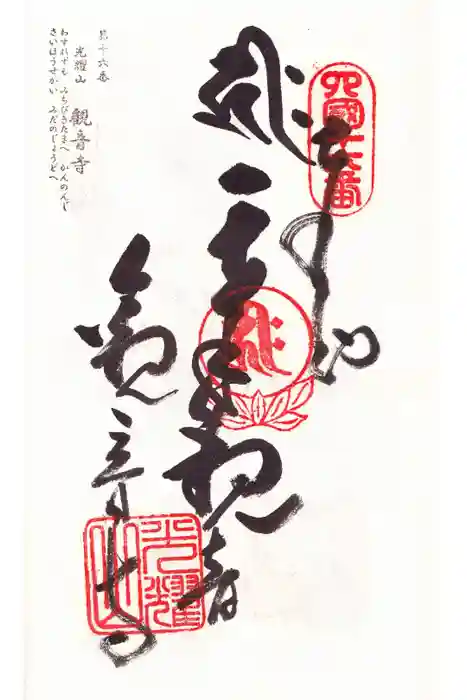 四國十六番
奉納
千手観音
観音寺
光耀山
第十六番
光耀山 観音寺
わすれずも みちびきたまへ かんのんじ
さいほうせかい みだのじょうどへ